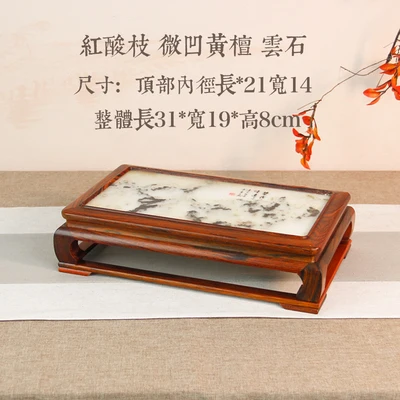 紅酸枝 微凹黃檀 雲石
尺寸：頂部內徑長*21寬14
整體長31*寬19*高8cm